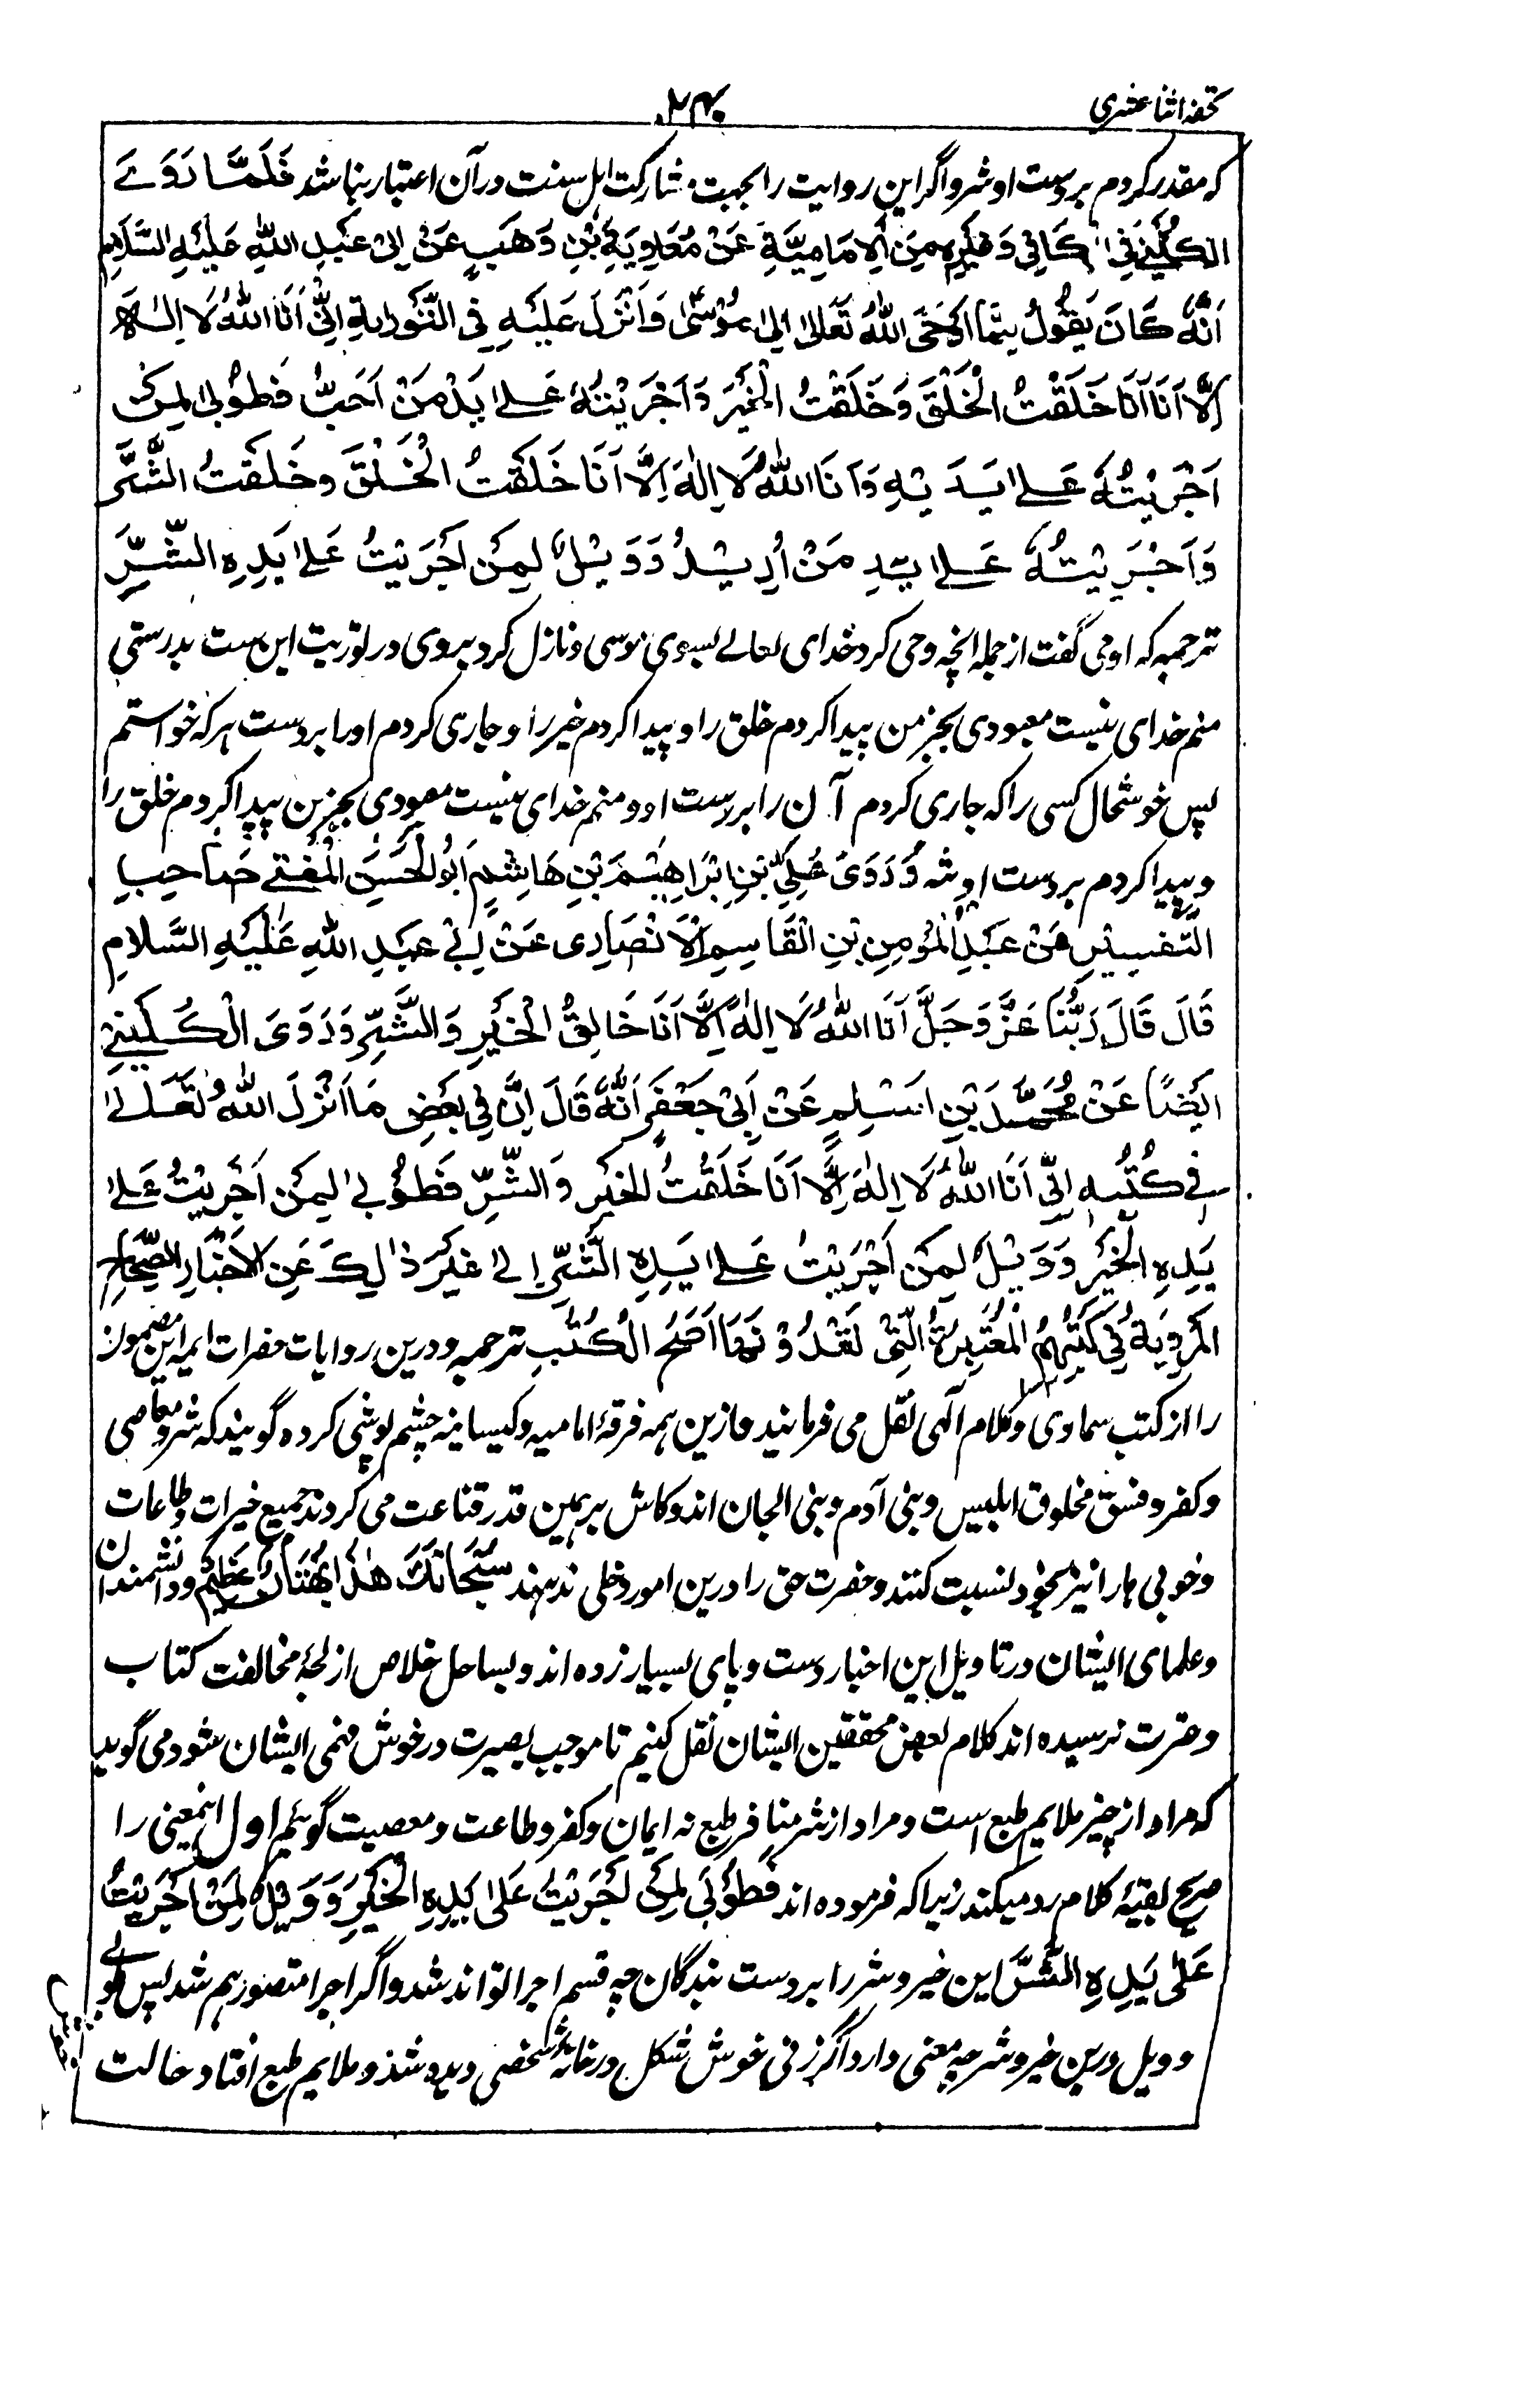 تحفه اثنا عشری
که مقدر کردم بر دست او شر و اگر این روایت را بجهت مشارکت اهل سنت در آن اعتبار نباشد فَلَمَّا رَوَىٰ
الکُلَیْنِی فِی الکَافِی وَغَیْرُهُ مِنَ الْاِمَامِیَّةِ عَنْ مُعَاوِیَةَ بْنِ وَهَبٍ عَنْ اَبِیْ عَبْدِ اللّٰهِ عَلَیْهِ السَّلَامُ
اَنَّهُ کَانَ یَقُوْلُ مِمَّا اَوْحَی اللّٰهُ تَعَالیٰ اِلیٰ مُوْسیٰ وَاَنْزَلَ عَلَیْهِ فِی التَّوْرٰیةِ اِنِّیْ اَنَا اللّٰهُ لَا اِلٰهَ
اِلَّا اَنَا اَنَا خَلَقْتُ الْخَلْقَ وَخَلَقْتُ الْخَیْرَ وَاَجْرَیْتُهُ عَلیٰ یَدْ مَنْ اَحَبُّ فَطُوْبیٰ لِمَنْ
اَجْرَیْتُهُ عَلیٰ یَدَیْهِ وَاَنَا اللّٰهُ لَا اِلٰهَ اِلَّا اَنَا خَلَقْتُ الْخَلْقَ وَخَلَقْتُ الشَّرَّ
وَاَجْرَیْتُهُ عَلیٰ یَدِ مَنْ اُرِیْدُ وَوَیْلٌ لِمَنْ اَجْرَیْتُ عَلیٰ یَدِهِ الشَّرِّ
ترجمه که او می گفت از جمله انچه وحی کرد خدای تعالے بسوی موسی و نازل کرد بروی در توریت این ست بدرستی
منم خدای نیست معبودی بجز من پیدا کردم خلق را و پیدا کردم خیر را و جاری کردم او را بر دست هر که خواستم
پس خوشحال کسی را که جاری کردم آن را بر دست او و منم خدای نیست معبودی بجز من پیدا کردم خلق را
و پیدا کردم بر دست او شر وَرَوَیٰ عَلِیُّ بْنِ اِبْرَاهِیْمَ بْنِ هَاشِمٍ اَبُو الْحَسَنِ الْقُمِّی صَاحِبِ
التَّفْسِیْرِ عَنْ عَبْدِ الْمُؤْمِنِ بْنِ الْقَاسِمِ الْاَنْصَارِی عَنْ اَبِیْ عَبْدِ اللّٰهِ عَلَیْهِ السَّلامِ
قَالَ قَالَ رَبُّنَا عَزَّ وَجَلَّ اَنَا اللّٰهُ لَا اِلٰهَ اِلَّا اَنَا خَالِقُ الْخَیْرِ وَالشَّرِّ وَرَوَیٰ الْکُلَیْنِی
اَیْضًا عَنْ مُحَمَّدِ بْنِ اسْلِمٍ عَنْ اَبِیْ جَعْفَرٍ اَنَّهُ قَالَ اِنَّ فِی بَعْضِ مَا اَنْزَلَ اللّٰهُ تَعَالیٰ
فِی کُتُبِهِ اِنِّی اَنَا اللّٰهُ لَا اِلٰهَ اِلَّا اَنَا خَلَقْتُ الْخَیْرَ وَالشَّرِّ فَطُوْبیٰ لِمَنْ اَجْرَیْتُ عَلیٰ
یَدِهِ الْخَیْرَ وَوَیْلٌ لِمَنْ اَجْرَیْتُ عَلیٰ یَدِهِ الشَّرِّ اِلیٰ غَیْرَ ذٰلِکَ عَنِ الْاَخْبَارِ الصِّحَاحِ
الْمَرْوِیَةُ فِی کُتُبِهُمُ الْمُعْتَبِرَةُ الَّتِیْ یَعُدُّوْنَهَا اَصَحَّ الْکُتُبِ ترجمه و درین روایات حضرات ایمه این مضمون
را از کتب سماوی و کلام آلهی نقل می فرمایند و ازین همه فرقهٔ امامیه و کیسانیه چشم پوشی کرده گویند که شر و معاصی
و کفر و فسق مخلوق ابلیس و بنی آدم و بنی الجان اند و کاش بر همین قدر قناعت می کردند جمیع خیرات و طاعات
و خوبی ها را نیز بخود نسبت کنند و حضرت حق را درین امور دخلی ندهند سُبْحَانَکَ هٰذَا بُهْتَانٌ عَظِیْمٌ و دانشمندان
و علمای ایشان در تاویل این اخبار دست و پای بسیار زده اند و بساحل خلاص از لجهٔ مخالفت کتاب
و عترت نرسیده اند کلام بعض محققین ایشان نقل کنیم تا موجب بصیرت در خوش فهمی ایشان شود می گوید
که مراد از خیر ملایم طبع است و مراد از شر منافر طبع نه ایمان و کفر و طاعت و معصیت گوئیم اول اینمعنی را
صریح بقیهٔ کلام رد میکند زیرا که فرموده اند فَطُوْبَی لِمَنْ اَجْرَیْتُ عَلیٰ یَدِهِ الْخَیْرِ وَوَیْلٌ لِمَنْ اَجْرَیْتُ
عَلیٰ یَدِهِ الشَّرَّ این خیر و شر را بر دست بندگان چه قسم اجرا تواند شد و اگر اجرا متصور هم شد پس طوبے
و ویل درین خیر و شر چه معنی دارد اگر زنی خوش شکل در خانهٔ شخصی دیده شد و ملایم طبع افتاد حالت